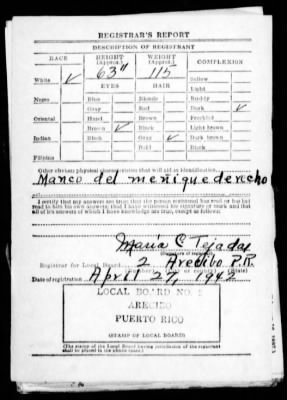 REGISTRAR'S REPORT
DESCRIPTION OF REGISTRANT
RACE HEIGHT (Approx.) WEIGHT (Approx.) COMPLEXION
115
White ✓ Sallow
EYES HAIR Light
Negro Blue Blonde Ruddy
Gray Red Dark ✓
Oriental Hazel Brown Freckled
Brown ✓ Black Light brown
Indian Black Gray ✓ Dark brown
Bald Black
Filipino
Other obvious physical characteristics that will aid in identification
Manco del meñique derecho
I certify that my answers are true; that the person registered has read or has had read to him his own answers; that I have witnessed his signature or mark and that all of his answers of which I have knowledge are true, except as follows:
Maria C Tejada
Registrar for Local Board 2 Arecibo P.R.
(Number) (City or county) (State)
Date of registration April 27, 1942
LOCAL BOARD NO.
ARECIBO
PUERTO RICO
(STAMP OF LOCAL BOARD)
(The stamp of the Local Board having jurisdiction of the registrant shall be placed in the above space.)